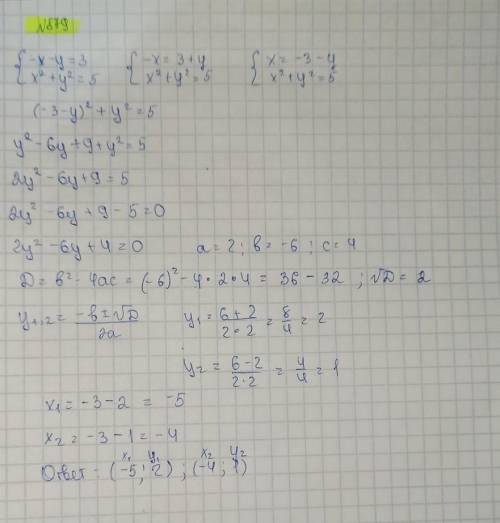 №879
{-x-y=3 {-x=3+y {x=-3-y
{x²+y²=5 {x²+y²=5 {x²+y²=5
(-3-y)²+y²=5
y²-6y+9+y²=5
2y²-6y+9=5
2y²-6y+9-5=0
2y²-6y+4=0 a=2; b=-6; c=4
D=b²-4ac=(-6)²-4·2·4=36-32; √D=2
y₁,₂=(-b±√D)/2a y₁=(6+2)/(2·2)=8/4=2
y₂=(6-2)/(2·2)=4/4=1
x₁=-3-2=-5
x₂=-3-1=-4
x₁ y₁ x₂ y₂
Ответ: (-5; 2); (-4; 1)